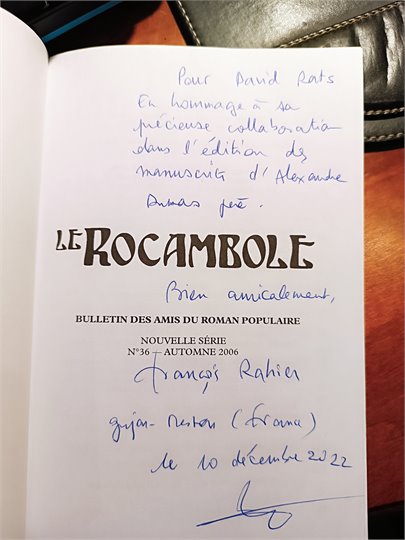 Pour David Rats
En hommage à sa
précieuse collaboration
dans l'édition des
manuscrits d'Alexandre
Dumas père.
LE ROCAMBOLE
Bien amicalement,
BULLETIN DES AMIS DU ROMAN POPULAIRE
NOUVELLE SÉRIE
N°36 — AUTOMNE 2006
François Rahier
Gujan-Mestras (France)
le 10 décembre 2022